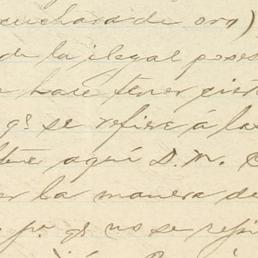 cuchara de oro)
de la ilegal poses
hace tener cier
qe se refiere á la
aquí D. M.
er la manera de
pa qe no se repi